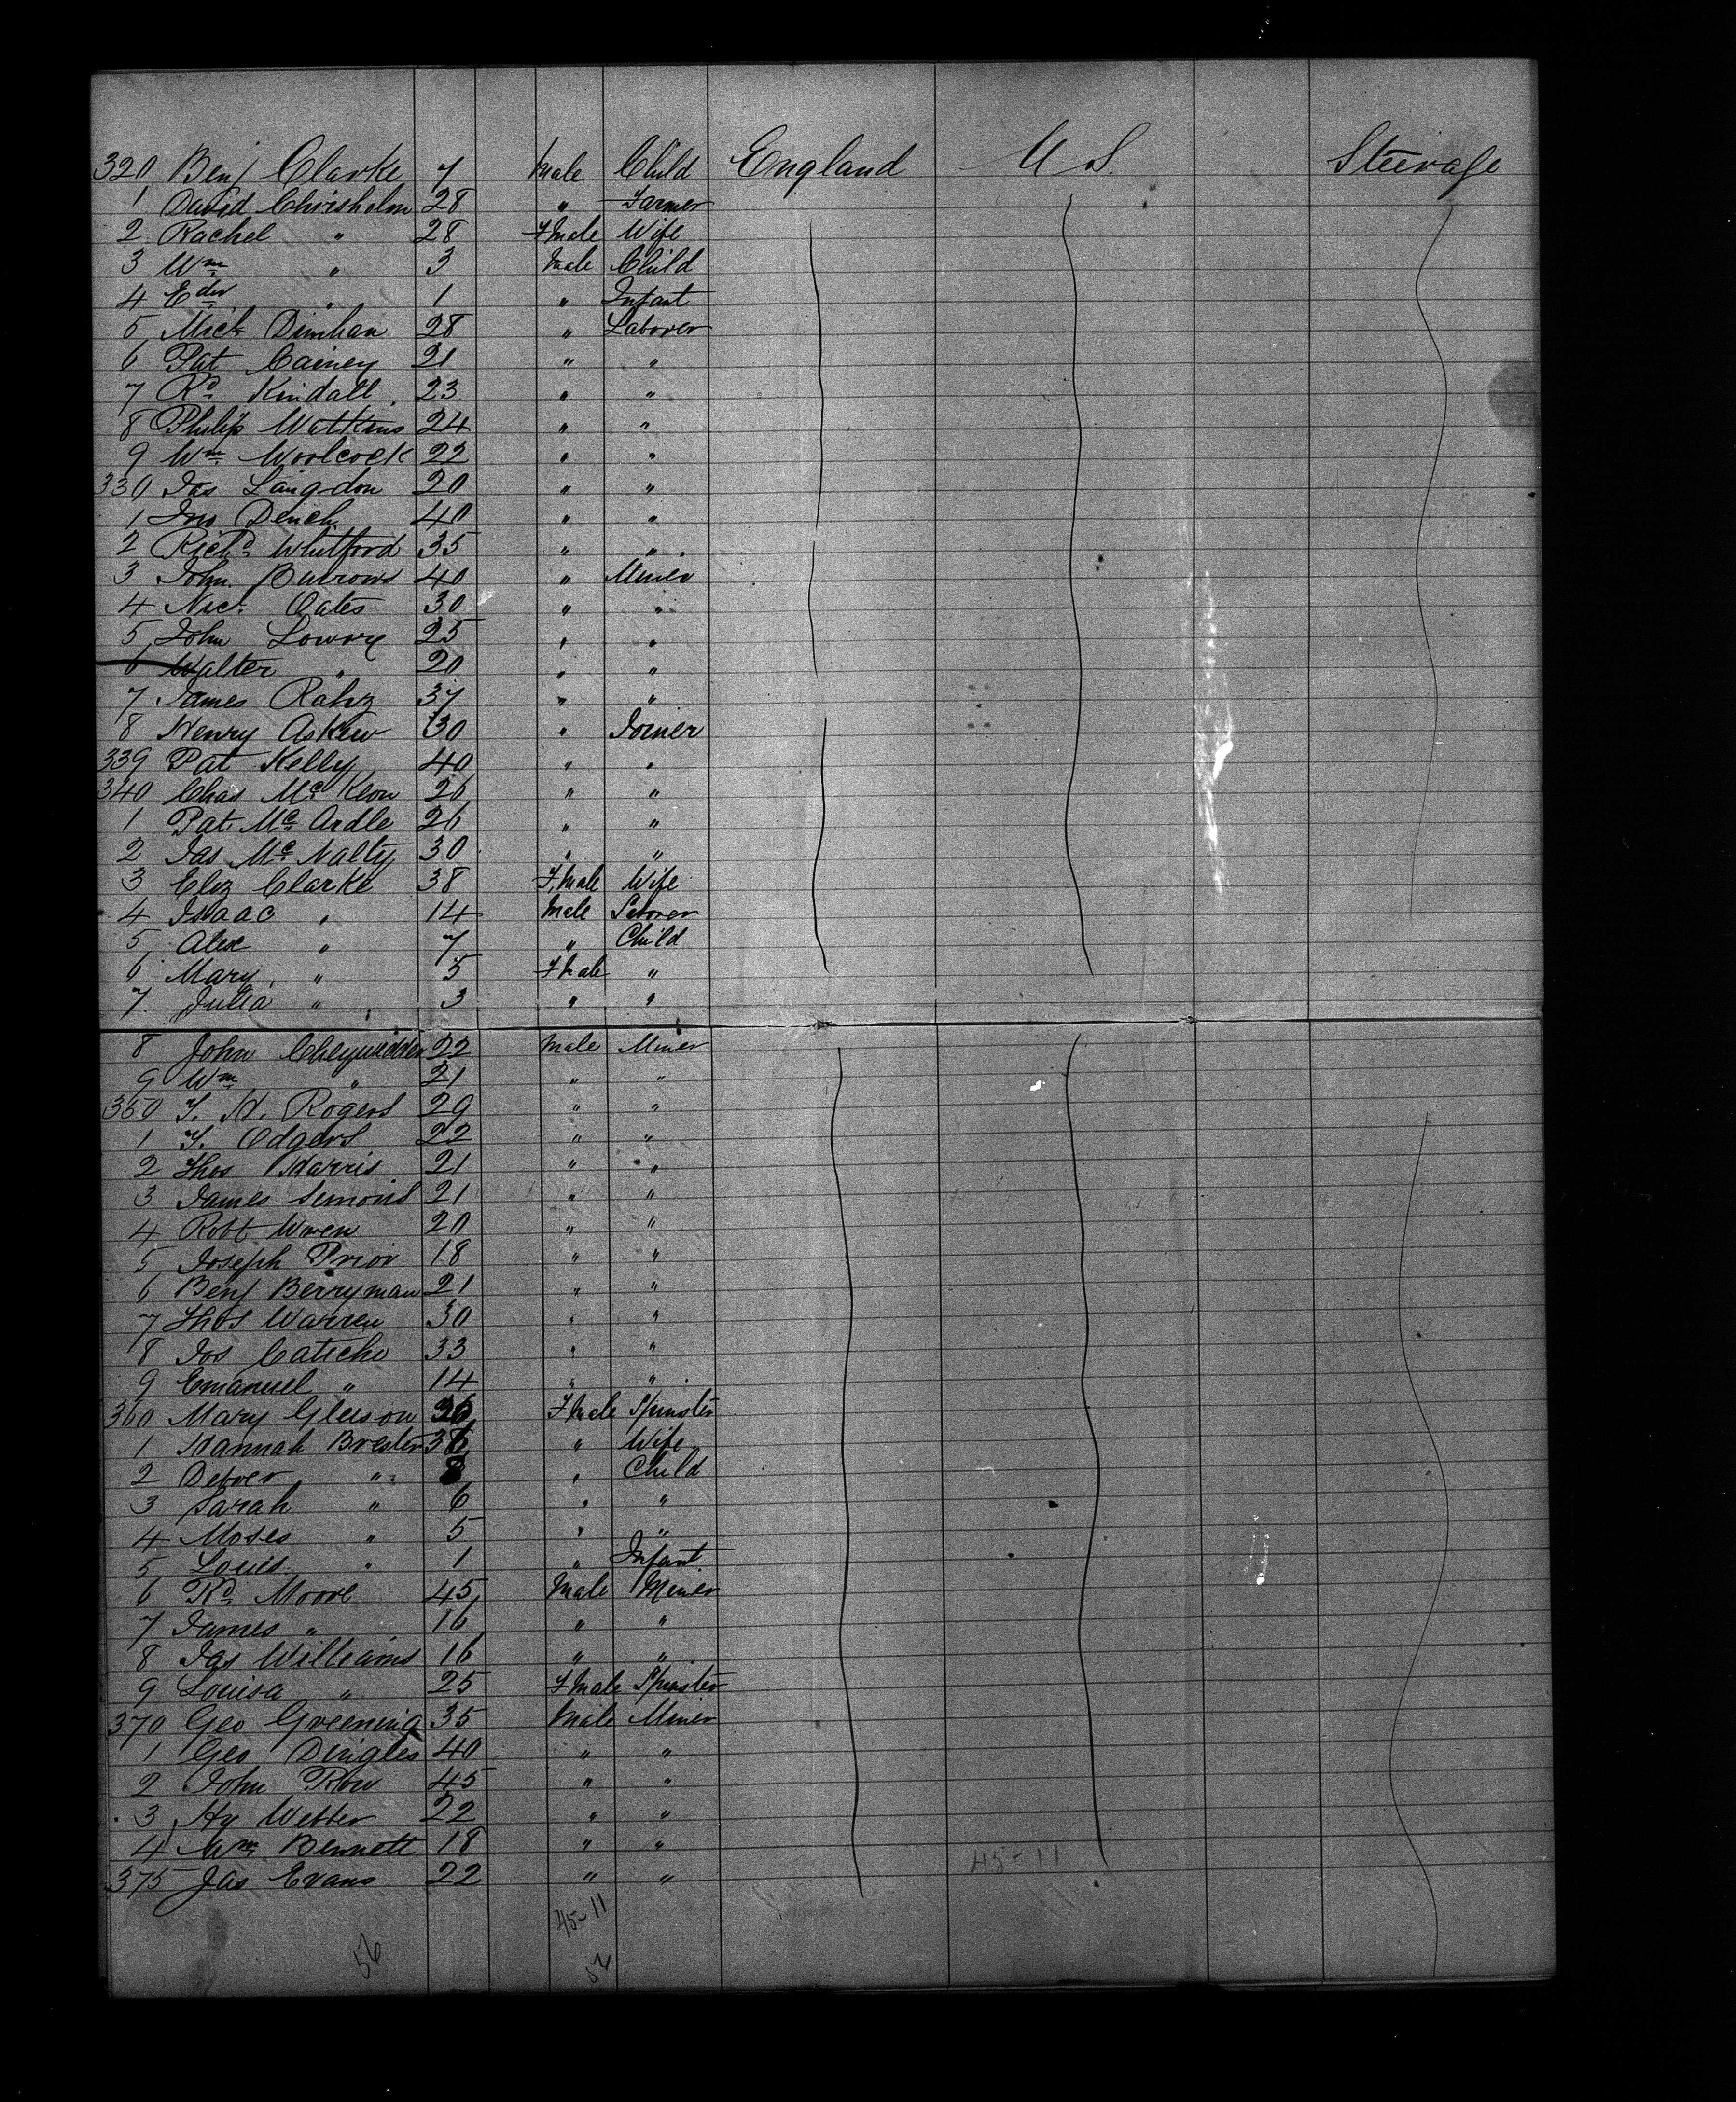 320 Benj Clarke 7 Male Child England U S. Steerage
1 David Chrisholm 28 " Farmer
2 Rachel " 28 Fmale Wife
3 Wm " 3 Male Child
4 Edw " 1 " Infant
5 Mich 28 " Laborer
6 Pat Cainey 21 " "
7 Rd Kindall 23 " "
8 Philip Watkins 24 " "
9 Wm Woolcock 22 " "
330 Jas Langdon 20 " "
1 Jno Dench 40 " "
2 Richd Whitford 35 " "
3 John Burrows 40 " Miner
4 Nic. Oates 30 " "
5 John Lowry 25 " "
6 Walter " 20 " "
7 James 37 " "
8 Henry Askew 30 " Joiner
339 Pat Kelly 40 " "
340 Chas Mc Keon 26 " "
1 Pat Mc Ardle 26 " "
2 Jas Mc Nalty 30 " "
3 Eliz Clarke 38 Fmale Wife
4 Isaac " 14 Male Laborer
5 Alex " 7 " Child
6 Mary " 5 Fmale "
7 Julia " 3 " "
8 John 22 Male Miner
9 Wm " 21 " "
350 T. H. Rogers 29 " "
1 T. Odgers 22 " "
2 Thos Harris 21 " "
3 James Simons 21 " "
4 Robt Wren 20 " "
5 Joseph Prior 18 " "
6 Benj Berryman 21 " "
7 Thos Warren 30 " "
8 Jos Caticho 33 " "
9 Emanuel " 14 " "
360 Mary Gleeson Fmale Spinster
1 Hannah Brester " Wife
2 " 8 " Child
3 Sarah " 6 " "
4 Moses " 5 " "
5 Louis " 1 " Infant
6 Rd Moore 45 Male Miner
7 James " 16 " "
8 Jas Williams 16 " "
9 Louisa " 25 Fmale Spinster
370 Geo Greening 35 Male Miner
1 Geo Dingles 40 " "
2 John Row 45 " "
3 Hy Webber 22 " "
4 Wm Bennett 18 " "
375 Jas Evans 22 " "
45-11
45-11
56